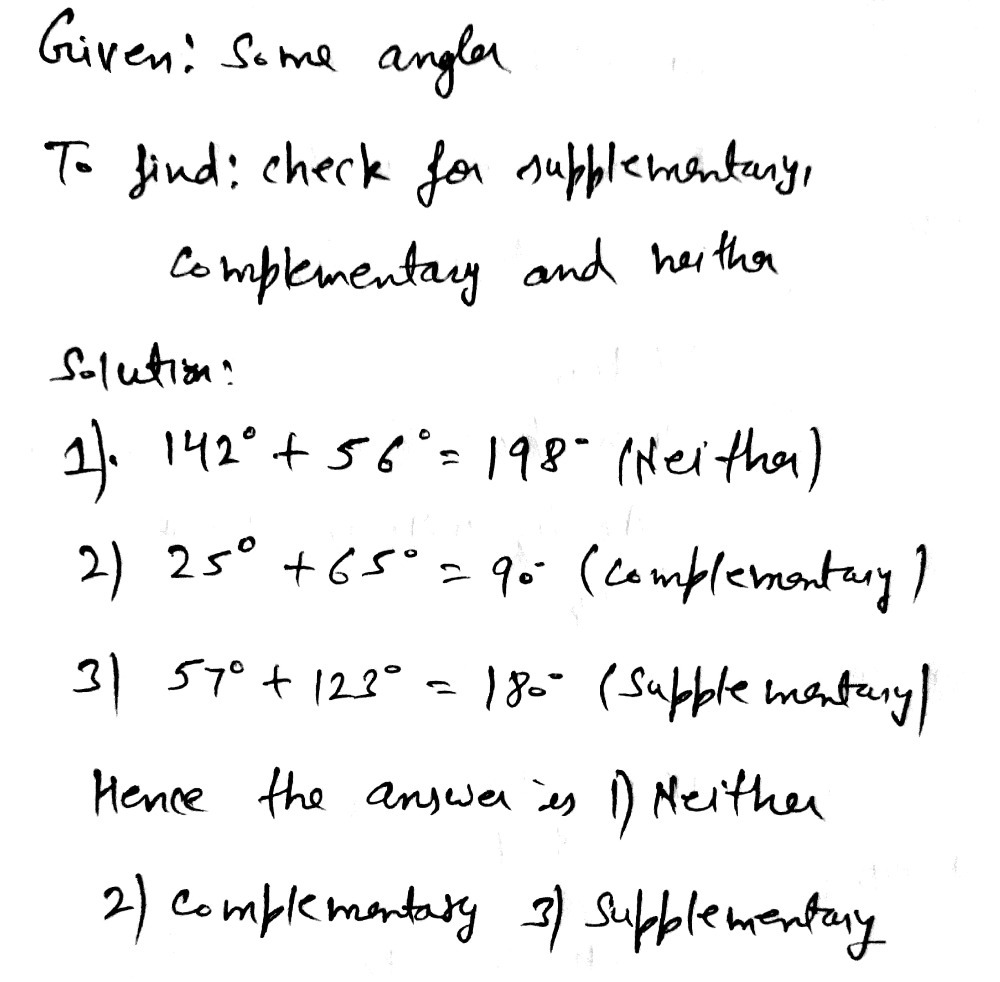 Given: Some angles
To find: check for supplementary,
Complementary and neither
Solution:
1). 142° + 56° = 198° (Neither)
2) 25° + 65° = 90° (Complementary)
3) 57° + 123° = 180° (Supplementary)
Hence the answer is 1) Neither
2) Complementary 3) Supplementary